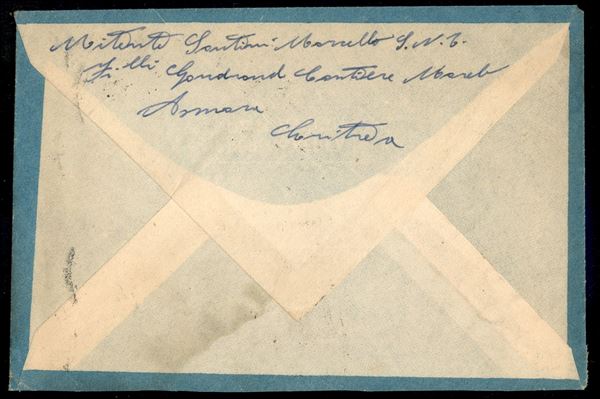 Mitente Santini Marcello S.N.G.
F.lli Gondrand Cantiere Mareb
Asmara
Eritrea